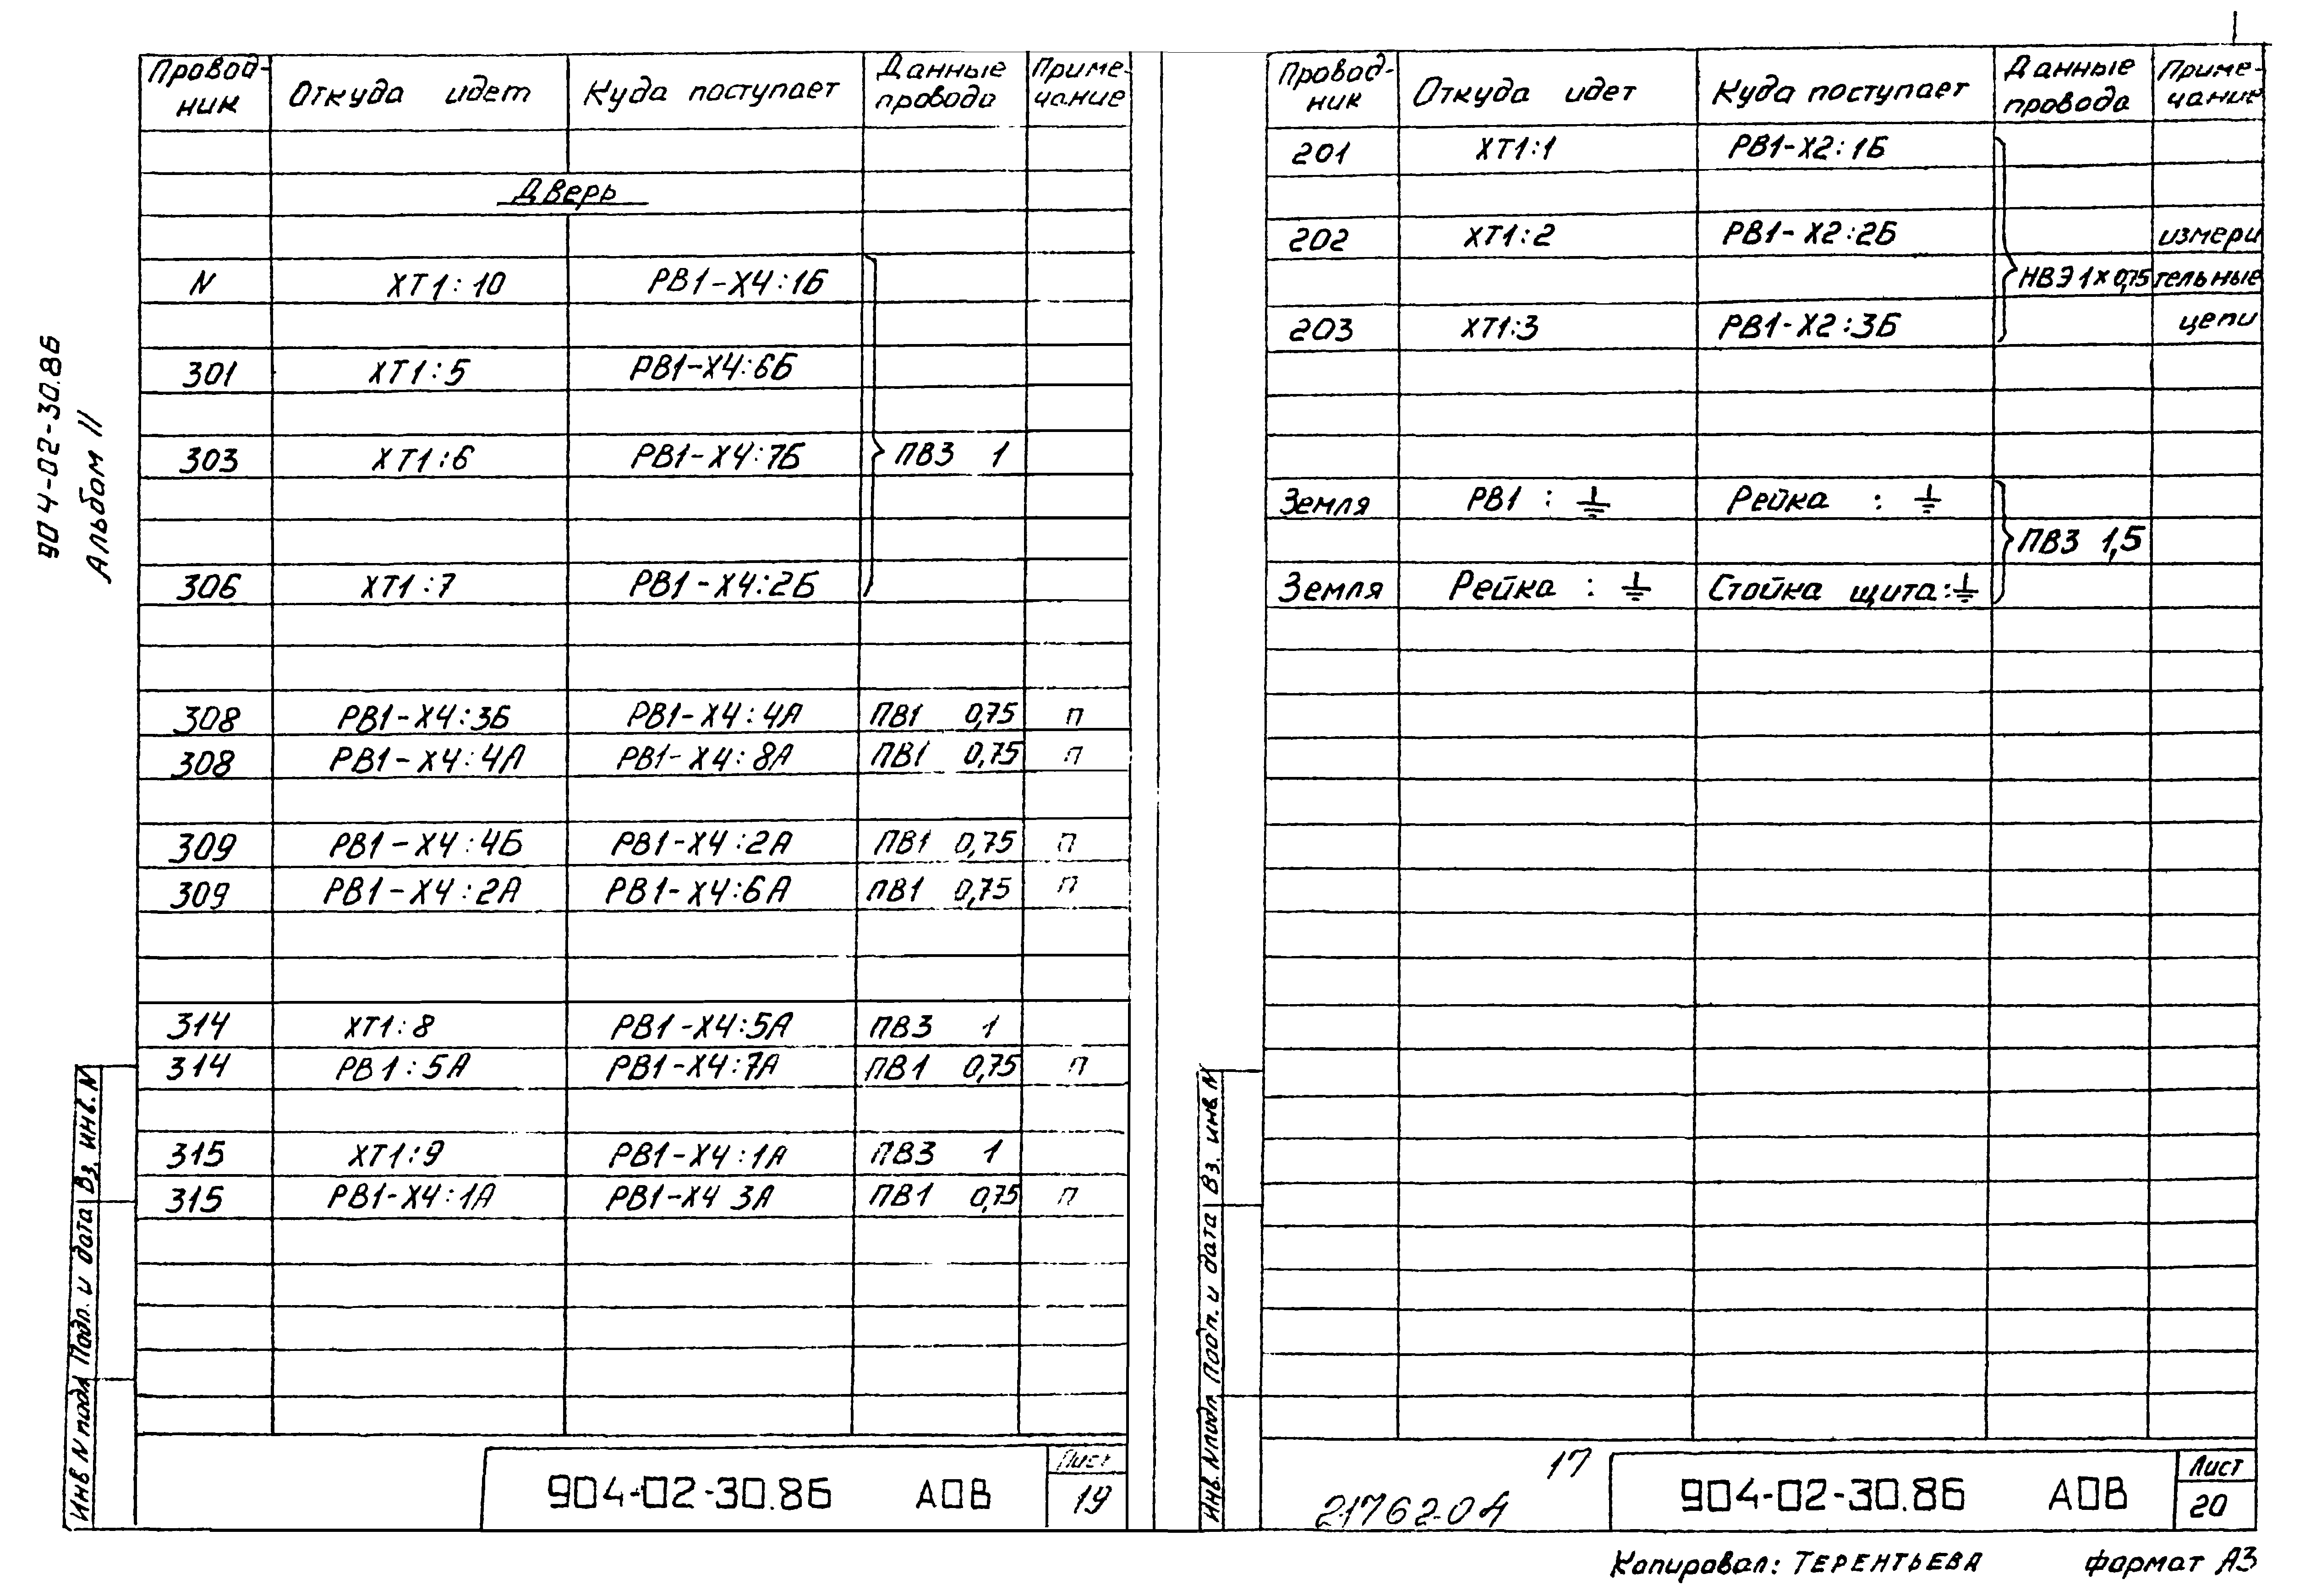 904-02-30.86
Альбом II
Провод- Откуда идет Куда поступает Данные Приме-
ник провода чание
Дверь
N XT1:10 PB1-X4:1Б
301 XT1:5 PB1-X4:6Б
303 XT1:6 PB1-X4:7Б ПВ3 1
306 XT1:7 PB1-X4:2Б
308 PB1-X4:3Б PB1-X4:4А ПВ1 0,75 п
308 PB1-X4:4А PB1-X4:8А ПВ1 0,75 п
309 PB1-X4:4Б PB1-X4:2А ПВ1 0,75 п
309 PB1-X4:2А PB1-X4:6А ПВ1 0,75 п
314 XT1:8 PB1-X4:5А ПВ3 1
314 PB1:5А PB1-X4:7А ПВ1 0,75 п
315 XT1:9 PB1-X4:1А ПВ3 1
315 PB1-X4:1А PB1-X4 3А ПВ1 0,75 п
Инв N подл Подп. и дата Вз. инв. N
904-02-30.86 АОВ
Лист
19
Провод- Откуда идет Куда поступает Данные Приме-
ник провода чание
201 XT1:1 PB1-X2:1Б
202 XT1:2 PB1-X2:2Б измери
НВЭ 1×0,75 тельные
203 XT1:3 PB1-X2:3Б цепи
Земля PB1 : ⏚ Рейка : ⏚
ПВ3 1,5
Земля Рейка : ⏚ Стойка щита:⏚
Инв. N подл Подп. и дата Вз. инв N
17
21762-04
904-02-30.86 АОВ
Лист
20
Копировал: ТЕРЕНТЬЕВА формат А3